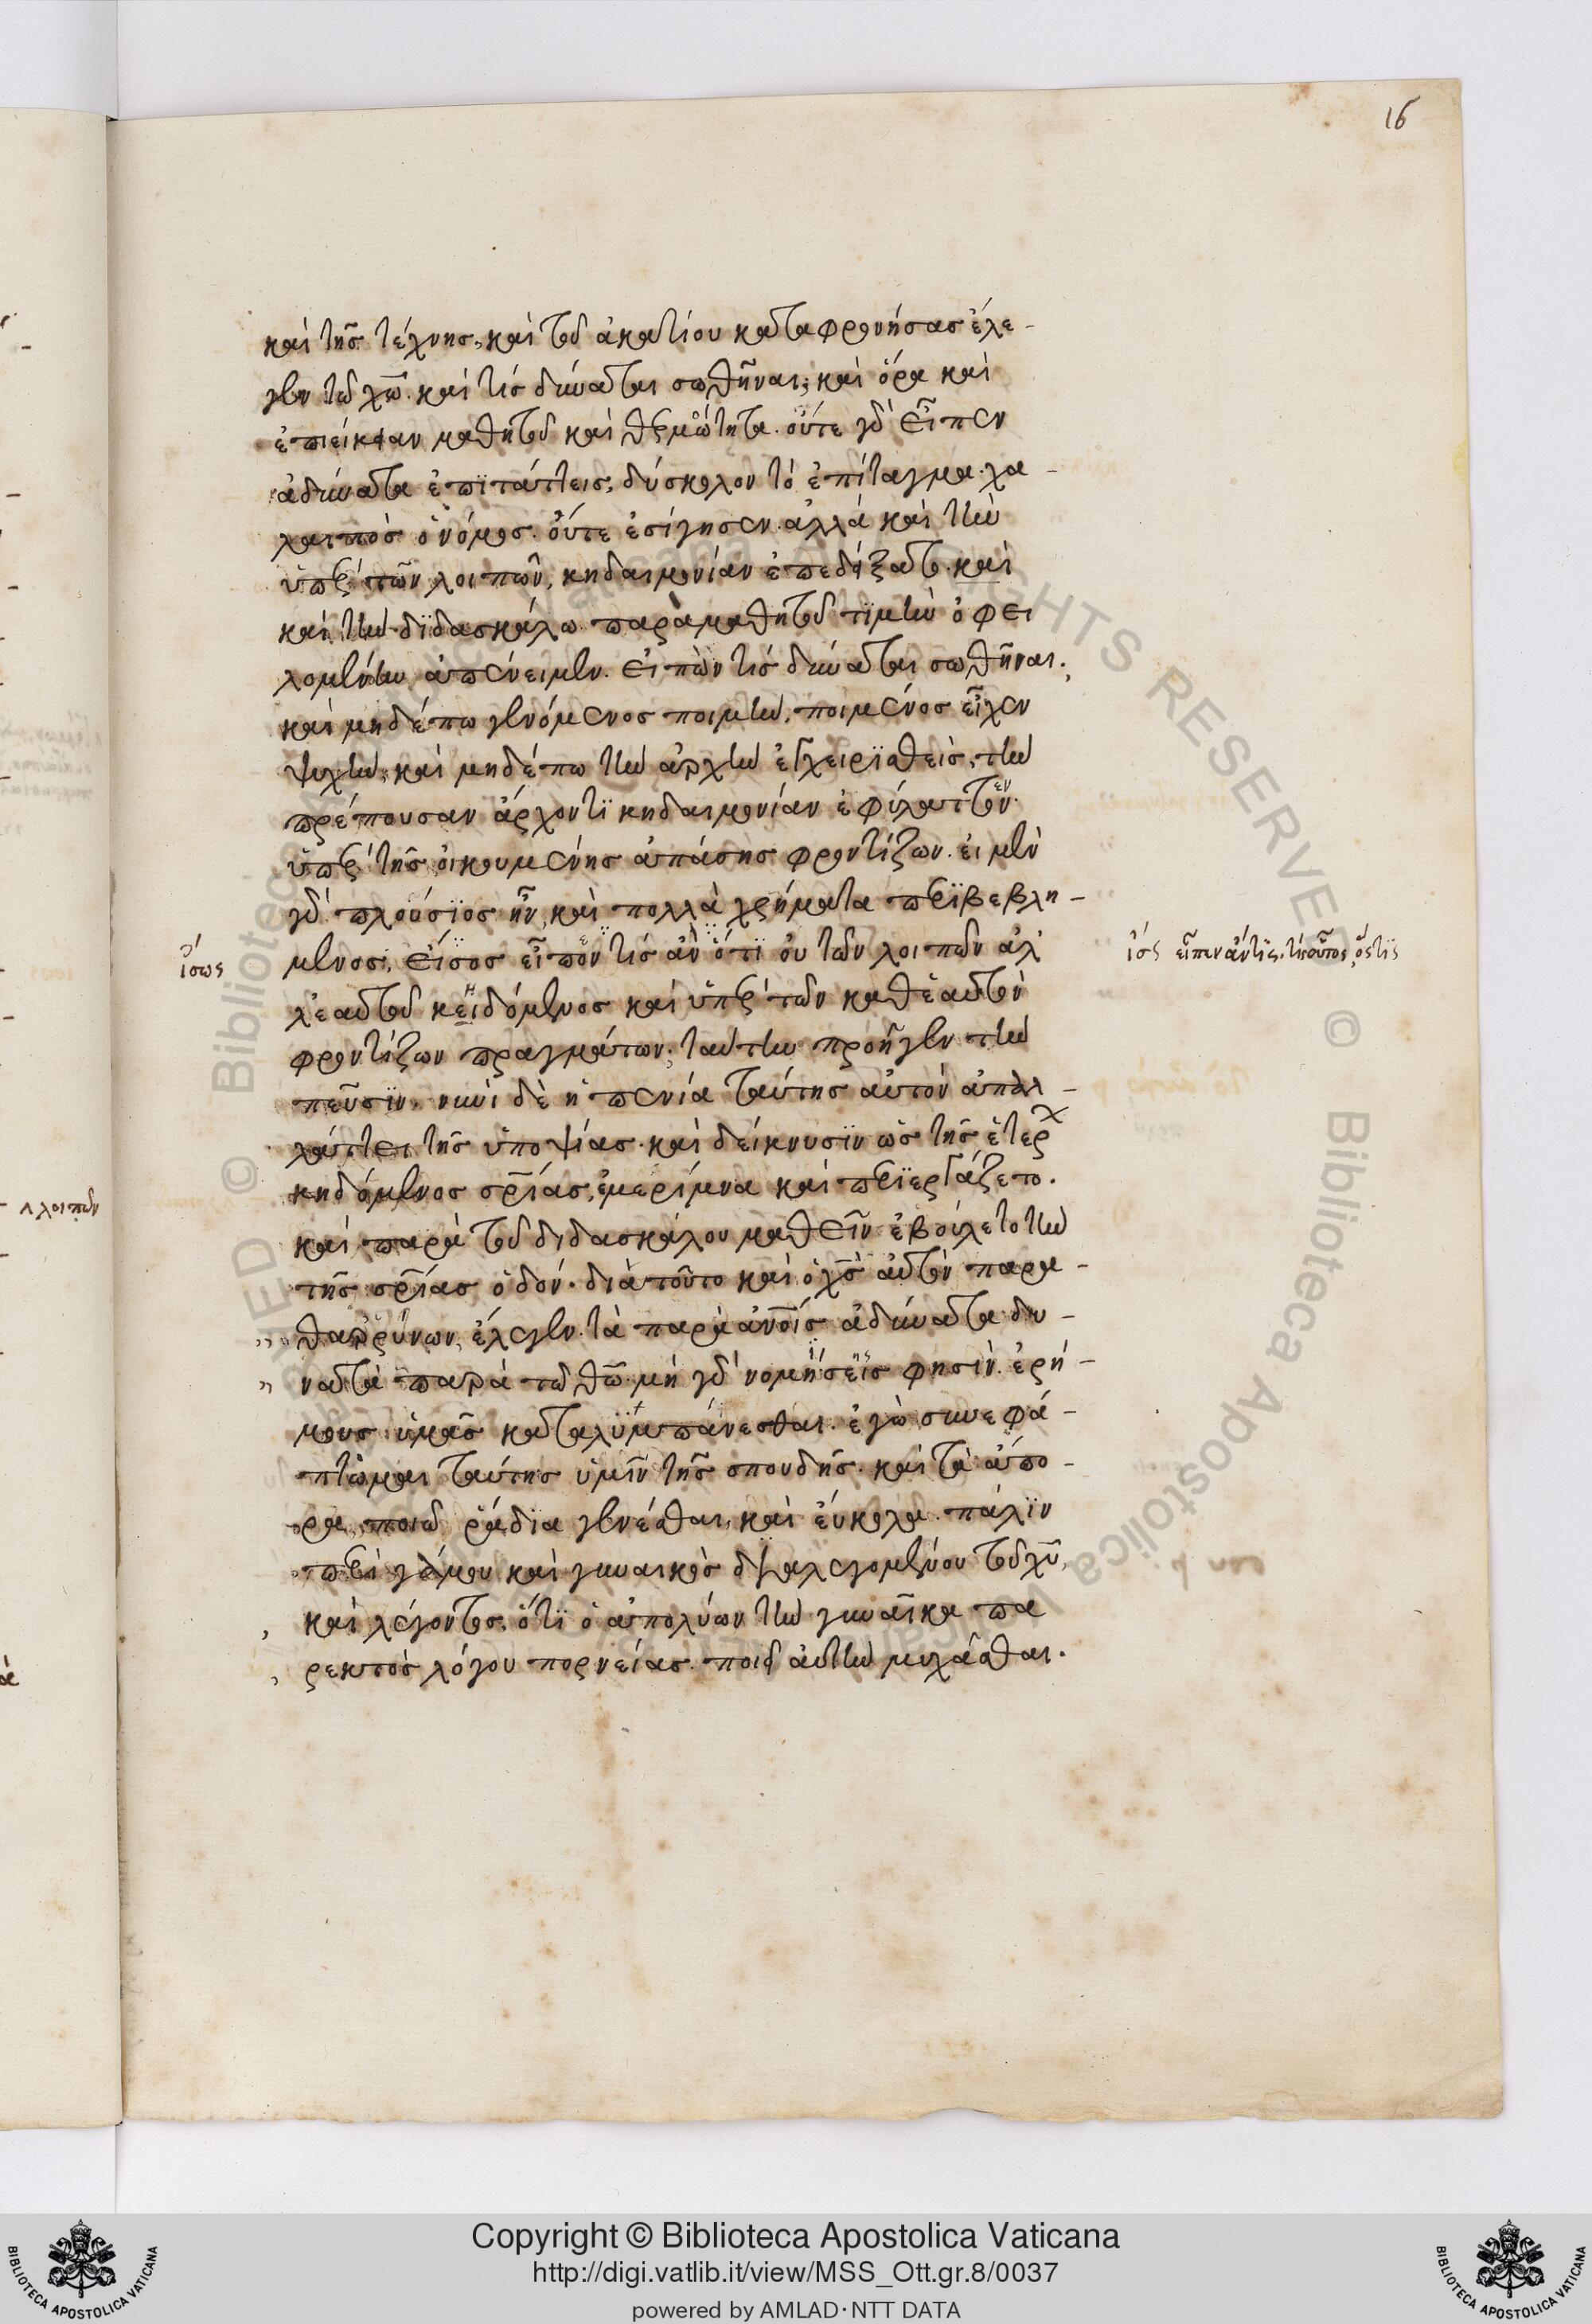 16
καὶ τῆς τέχνης, καὶ τοῦ ἀκατίου καταφρονήσας ἔλε-
γεν τῶ χῶ. καὶ τίς δύναται σωθῆναι; καὶ ὅρα καὶ
ἐπιείκειαν μαθητοῦ καὶ θερμότητα. οὔτε γὰρ εἶπεν
ἀδύνατα ἐπιτάττεις, δύσκολον τὸ ἐπίταγμα. χα-
λαιπὸς ὁ νόμος. οὔτε ἐσίγησεν. ἀλλὰ καὶ τὴν
ὑπὲρ τῶν λοιπῶν, κηδαιμονίαν ἐπεδείξατο. καὶ
καὶ τῶ διδασκάλω παρὰ μαθητοῦ τιμὴν ὀφει
λομένην ἀπένειμεν. εἰπὼν τίς δύναται σωθῆναι;
καὶ μηδέπω γενόμενος ποιμὴν, ποιμένος εἶχεν
ψυχὴν, καὶ μηδέπω τὴν ἀρχὴν ἐγχειρισθεὶς, τὴν
πρέπουσαν ἄρχοντι κηδαιμονίαν ἐφύλαττεν.
ὑπὲρ τῆς οἰκουμένης ἁπάσης φροντίζων. εἰ μὲν
γὰρ πλούσιος ἦν, καὶ πολλὰ χρήματα περιβεβλη-
ἴσως μένος, εἴσος εἶπόν τίς ἂν ὅτι οὐ τῶν λοιπῶν ἀλ ἰσς εἶπεν ἄν τις
λ' ἑαυτοῦ κειδόμενος καὶ ὑπὲρ τῶν καθ' ἑαυτὸν
φροντίζων πραγμάτων, ταύτην προῆγεν τὴν
πεῦσιν. νυνὶ δὲ ἡ πενία ταύτης αὐτὸν ἀπαλ-
λάττει τῆς ὑποψίας. καὶ δείκνυσιν ὡς τῆς ἑτερ
κηδόμενος σρίας, ἐμερίμνα καὶ περιεργάζετο.
λοιπῶν
καὶ παρὰ τοῦ διδασκάλου μαθεῖν ἐβούλετο τὴν
τῆς σρίας ὁδόν. διὰ τοῦτο καὶ ὁ χς αὐτὸν παρα-
θαρρύνων, ἔλεγεν. τὰ παρὰ ἀνοις ἀδύνατα δυ-
νατὰ παρὰ τῶ θῶ. μὴ γὰρ νομήσεις φησὶν. ἐρή-
μους ὑμᾶς καταλυμπάνεσθαι. ἐγὼ συνεφά-
πτομαι ταύτης ὑμῖν τῆς σπουδῆς. καὶ τὰ ἄπο-
ρα ποιῶ ῥάδια γενέσθαι, καὶ εὔκολα. πάλιν
περὶ γάμου καὶ γυναικὸς διαλεγομένου τοῦ χῦ,
καὶ λέγοντος, ὅτι ὁ ἀπολύων τὴν γυναῖκα πα
ρεκτὸς λόγου πορνείας. ποιεῖ αὐτὴν μιχᾶσθαι.
Copyright © Biblioteca Apostolica Vaticana
http://digi.vatlib.it/view/MSS_Ott.gr.8/0037
powered by AMLAD·NTT DATA
BIBLIOTECA APOSTOLICA VATICANA
BIBLIOTECA APOSTOLICA VATICANA